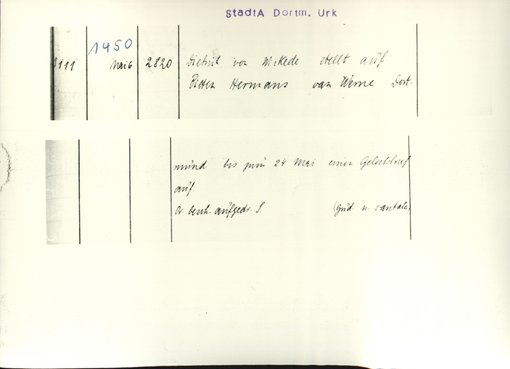 StadtA Dortm. Urk
1450
1111 Mai 6 2820 Dietrich von Wickede stellt auf
Bitten Hermans van Werne Dort-
mund bis zum 24 Mai einen Geleitbrief
auf
Or besch. aufgedr. S. (Gud u. cantate)